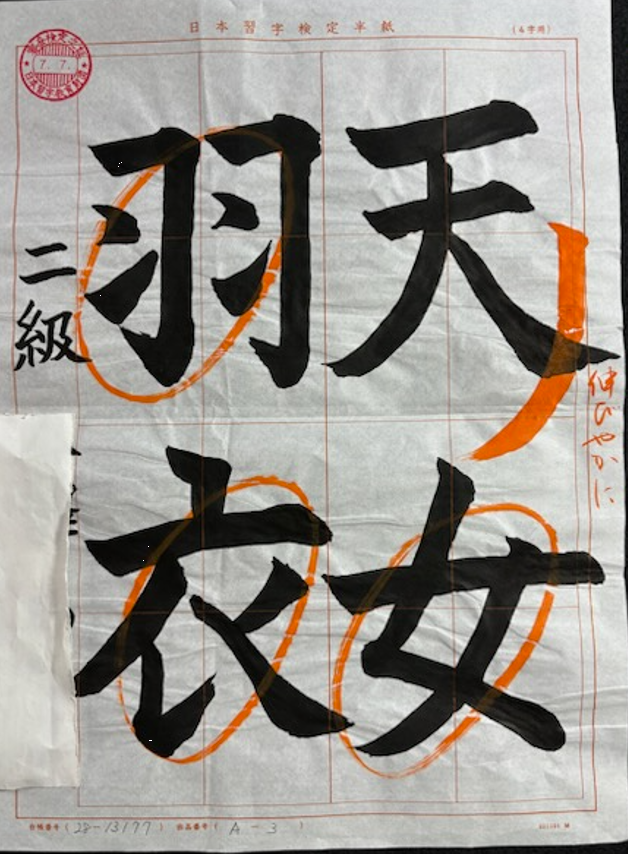 日本習字検定半紙
(4字用)
7.7.
天女
羽衣
伸びやかに
二級
会員番号(28-13177) 出品番号(A-3)